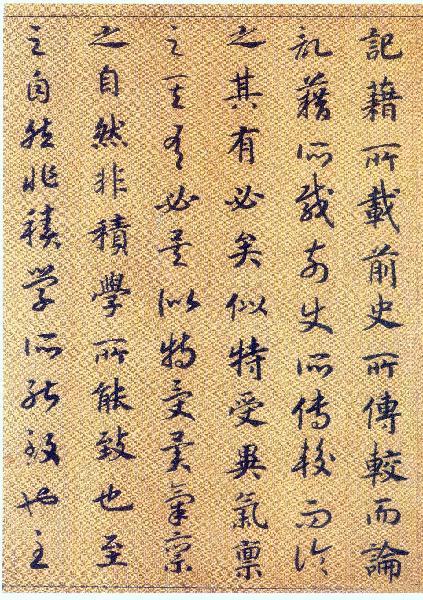 記藉所載前史所傳較而論
記藉所載前史所傳較而論
之其有必矣似特受異氣禀
之其有必矣似特受異氣禀
之自然非積學所能致也至
之自然非積學所能致也至